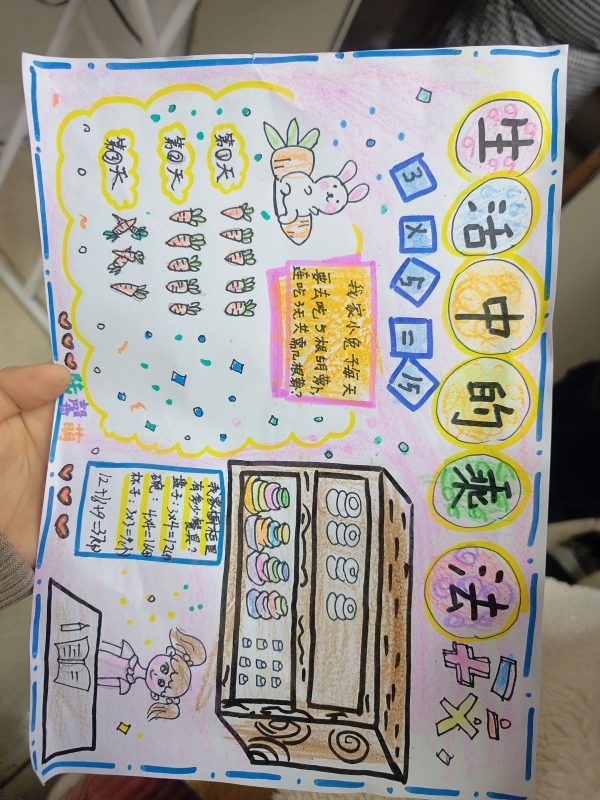 生活中的乘法
3×5=15
我家小兔子每天
要去吃5根胡萝卜,
连吃3天共需几根萝?
第①天
第②天
第③天
馨萌
我家橱柜里
有多少餐具?
盘子:3×4=12(个)
碗:4×4=16(个)
杯子:3×3=9(个)
12+16+9=37(个)
+ - × ÷